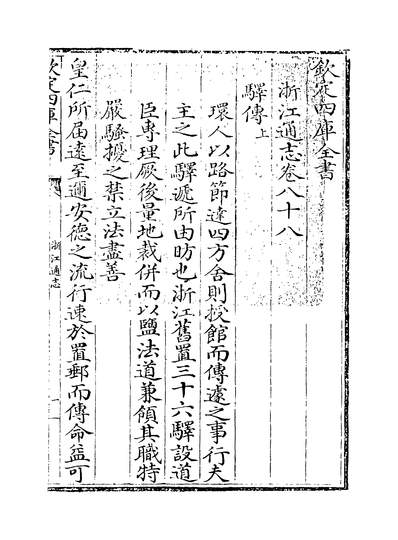 欽定四庫全書
浙江通志卷八十八
驛傳上
環人以路節達四方舍則授館而傳遽之事行夫
主之此驛遞所由昉也浙江舊置三十六驛設道
臣專理厥後量地裁併而以鹽法道兼領其職特
嚴騷擾之禁立法盡善
皇仁所届遠至邇安德之流行速於置郵而傳命益可
欽定四庫全書
浙江通志